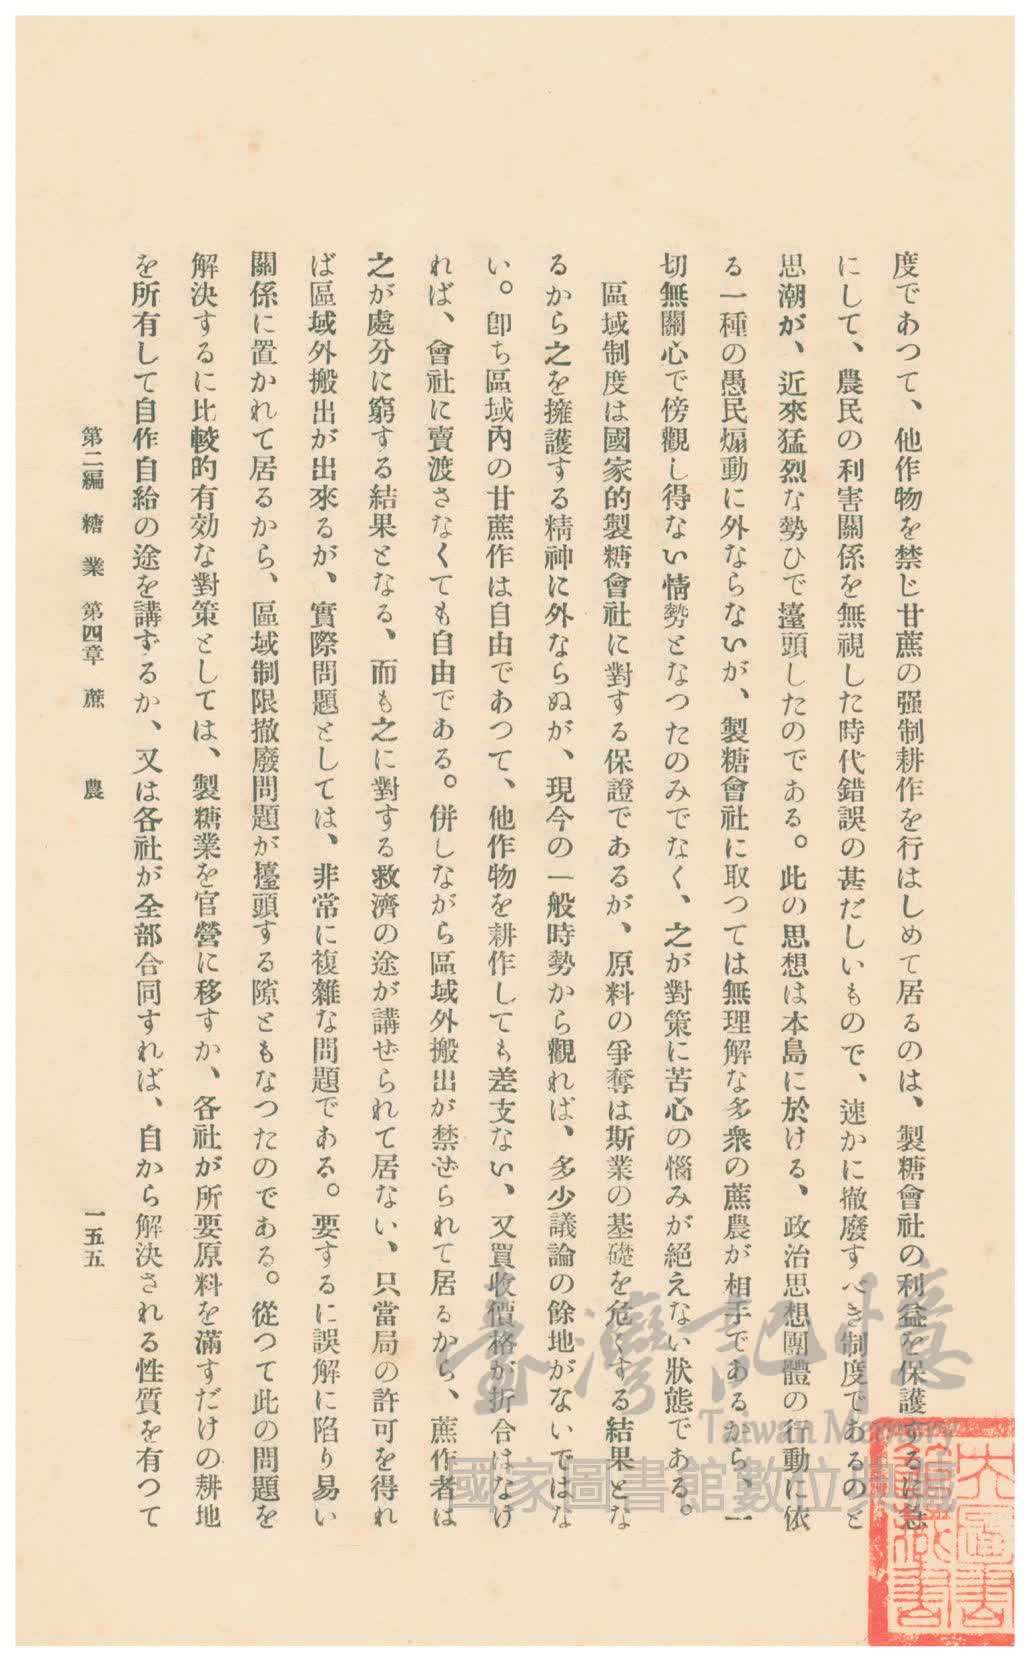 度であつて、他作物を禁じ甘蔗の强制耕作を行はしめて居るのは、製糖會社の利益を保護するに急
にして、農民の利害關係を無視した時代錯誤の甚だしいもので、速かに撤廢すべき制度であるのと
思潮が、近來猛烈な勢ひで擡頭したのである。此の思想は本島に於ける、政治思想團體の行動に依
る一種の愚民煽動に外ならないが、製糖會社に取つては無理解な多衆の蔗農が相手であるから、一
切無關心で傍觀し得ない情勢となつたのみでなく、之が對策に苦心の惱みが絕えない狀態である。
區域制度は國家的製糖會社に對する保證であるが、原料の爭奪は斯業の基礎を危くする結果とな
るから之を擁護する精神に外ならぬが、現今の一般時勢から觀れば、多少議論の餘地がないではな
い。卽ち區域內の甘蔗作は自由であつて、他作物を耕作しても差支ない、又買收價格が折合はなけ
れば、會社に賣渡さなくても自由である。併しながら區域外搬出が禁ぜられて居るから、蔗作者は
之が處分に窮する結果となる、而も之に對する救濟の途が講ぜられて居ない、只當局の許可を得れ
ば區域外搬出が出來るが、實際問題としては、非常に複雜な問題である。要するに誤解に陷り易い
關係に置かれて居るから、區域制限撤廢問題が擡頭する隙ともなつたのである。從つて此の問題を
解決するに比較的有効な對策としては、製糖業を官營に移すか、各社が所要原料を滿すだけの耕地
を所有して自作自給の途を講ずるか、又は各社が全部合同すれば、自から解決される性質を有つて
第二編 糖業 第四章 蔗農 一五五
臺灣記憶
Taiwan Memory
國家圖書館數位典藏